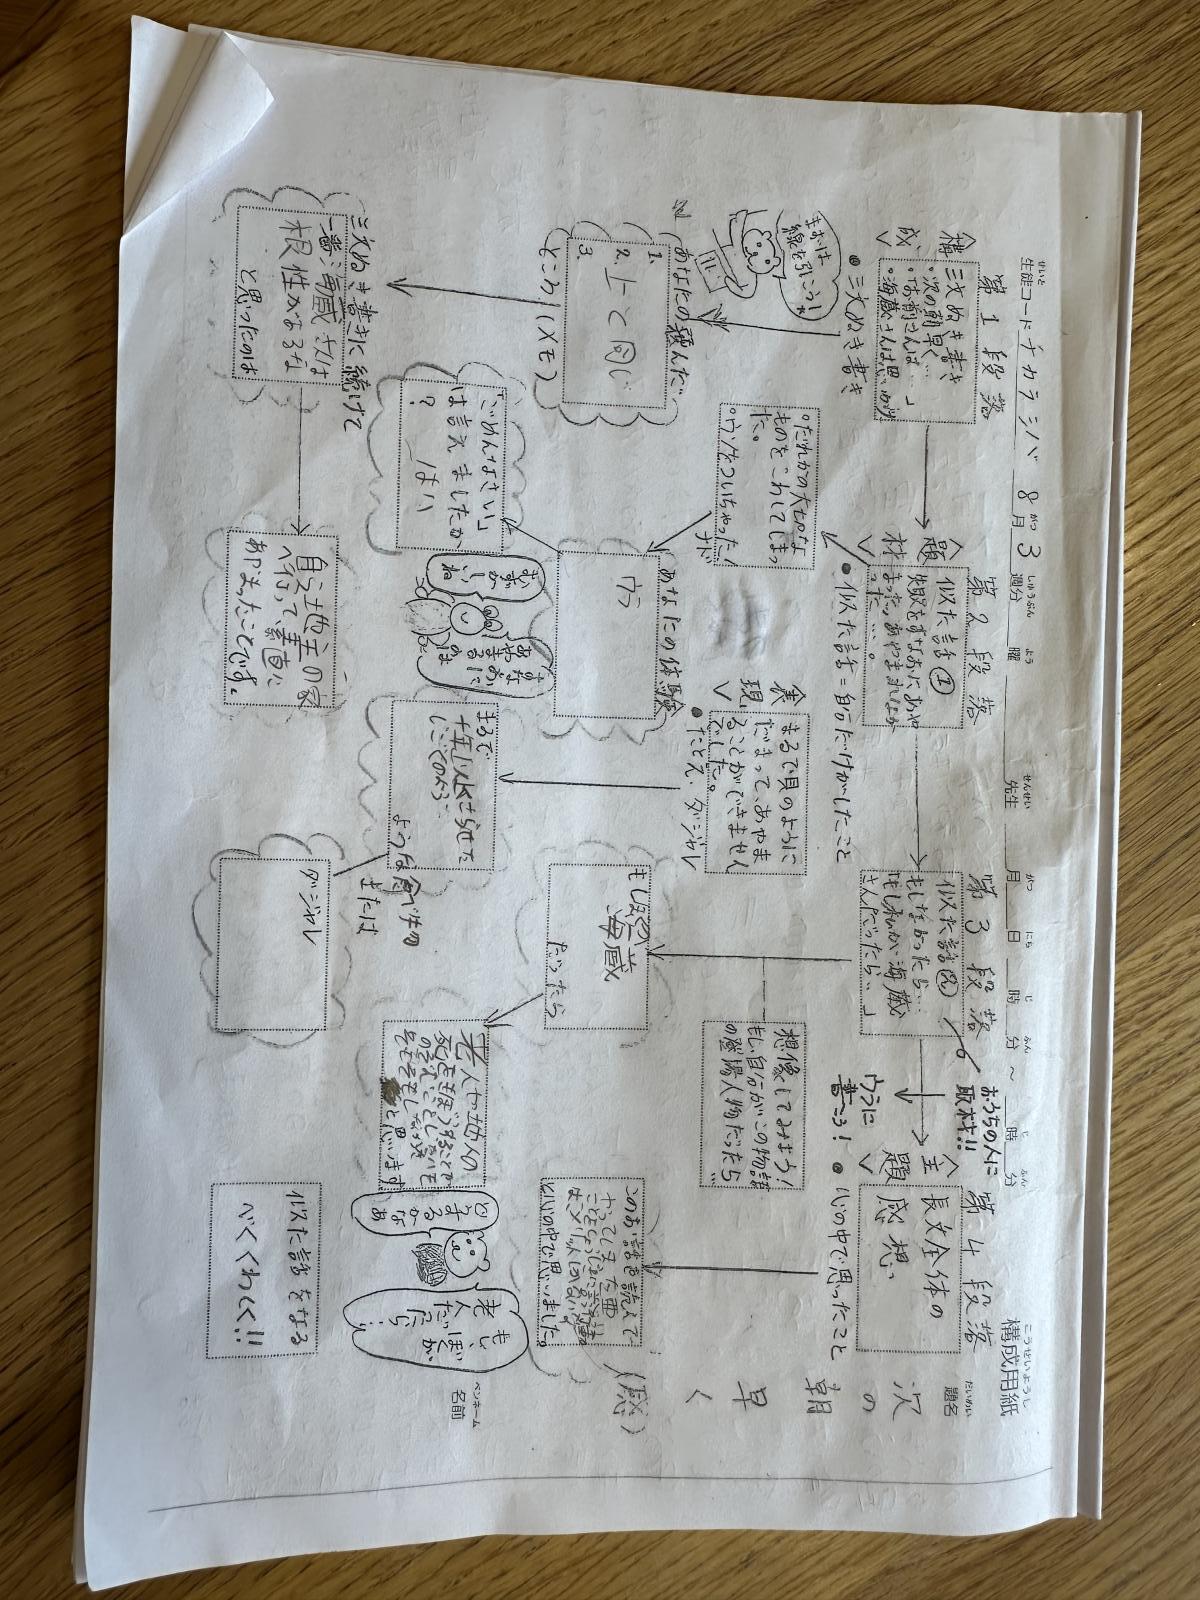 構成用紙
生徒コード チカラシバ 8月3週分 曜 先生 月 日 時 分 ~ 時 分
せいと
がつ
しゅうぶん
よう
せんせい
がつ
にち
じ
ふん
じ
ふん
こうせいようし
だいめい
題名
次の朝早く
(感)
ペンネーム
名前
第1段落
<構成>
三文ぬき書き
・次の朝早く…
・海蔵さんは思
・三文ぬき書き
まずは
線を引こう!
あなたの選んだ
1.
2. 上と同じ
3.
ところ!(メモ)
三文ぬき書きに続けて
一番、海蔵さんは
根性があるな
と思ったのは
自ら地主の家
へ行って、素直に
あやまったことです。
第2段落
<題材>
似た話①
失敗をすなおにあや
まった。あやまれなか
った…。
・似た話=自分だけがしたこと
。だれかの大切な
ものをこわしてしまっ
た。
。ウソをついちゃった!
ナド
あなたの体験
ウラ
「ごめんなさい」
は言えましたか
?
はい
すなおに
あやまる
のは
むずかしい
ね
<表現>
まるで貝のように
だまって、あやま
ることができません
でした。
・たとえ・ダジャレ
まるで
ような食べもの
または
ダジャレ
第3段落
似た話②
もし〜だったら…
「もし私が海蔵
さんだったら、」
おうちの人に
取材!!
ウラに
書こう!
想像してみよう!
もし自分がこの物語
の登場人物だったら…
もしぼくが
海蔵
だったら
老人や地人の
と思います
どう
するかな
あ
もし、ぼくが
老人
だったら…
第4段落
<主題>
長文全体の
感想
・心の中で思ったこと
このお話を読んで
と心の中で思いました。
似た話をなる
べくくわしく!!